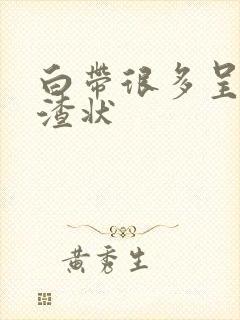 白带很多呈
渣状
黄秀生